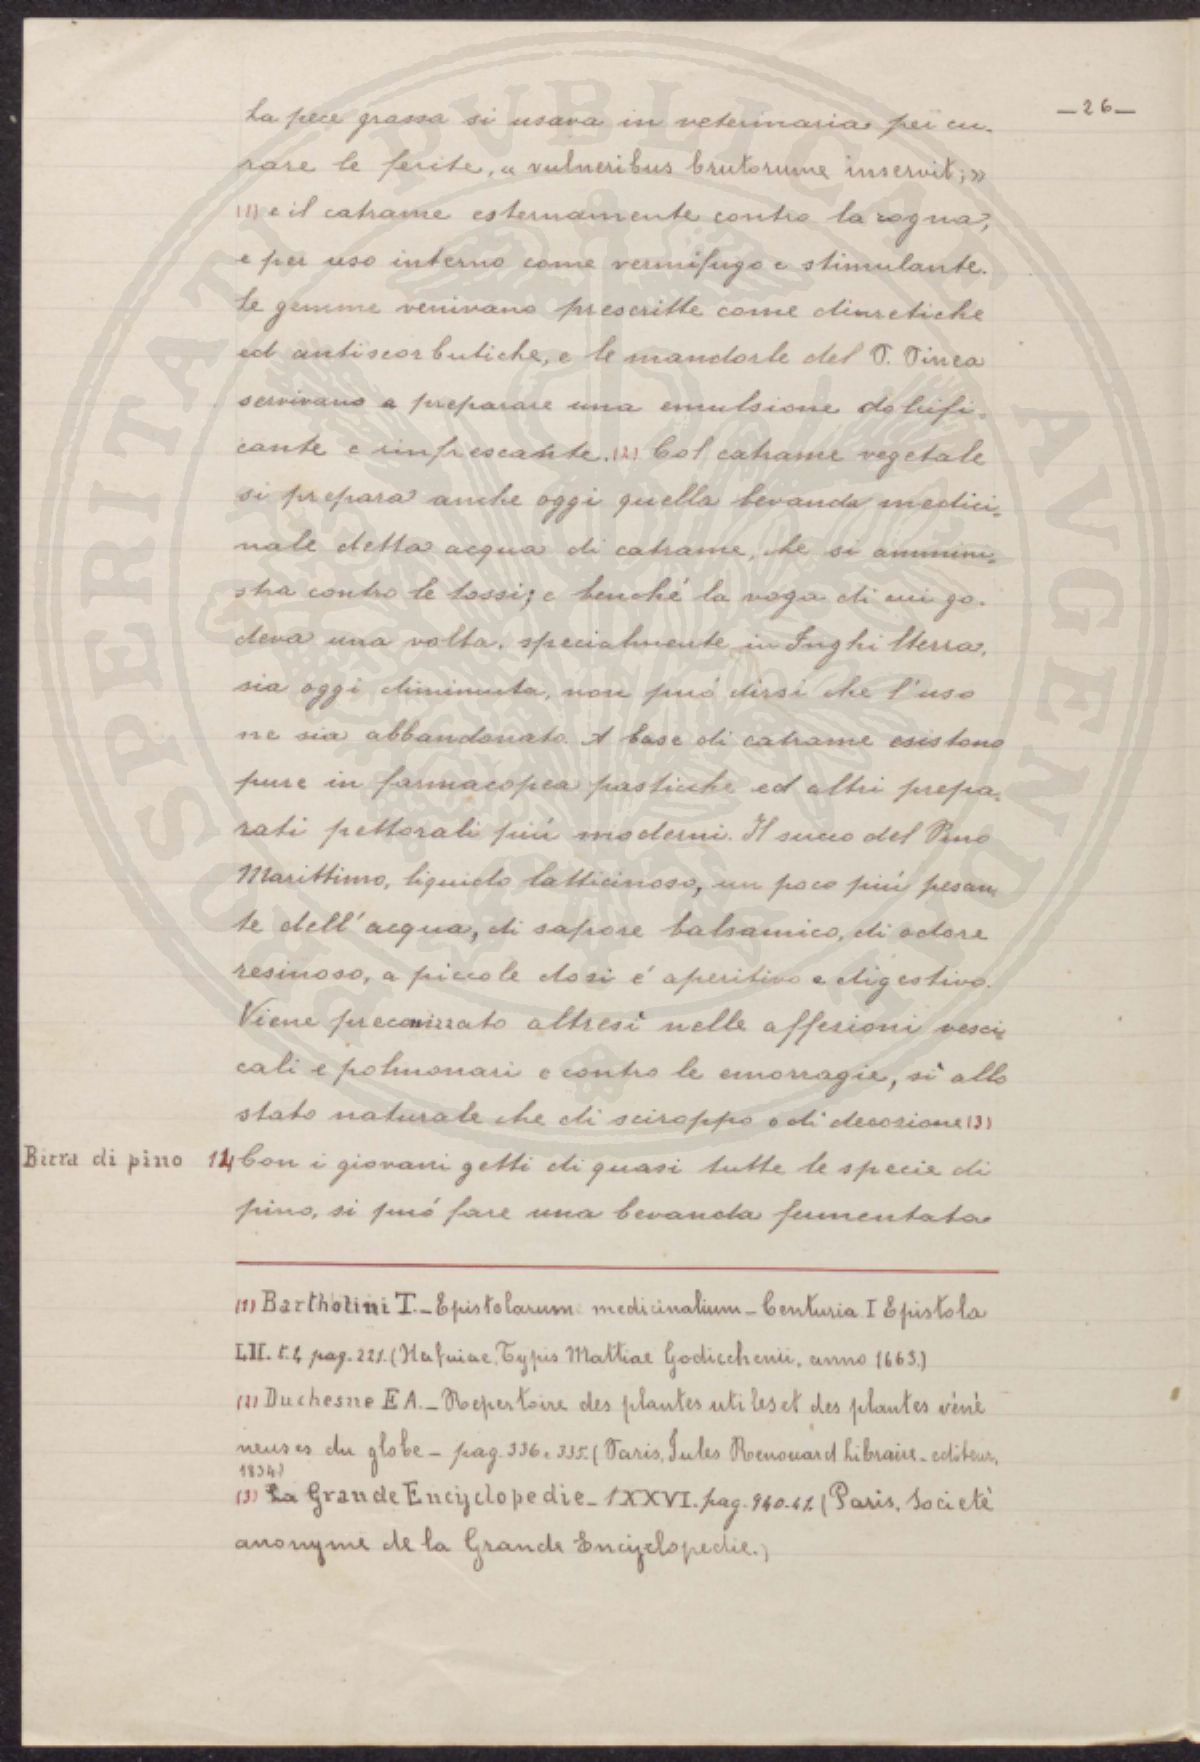 —26—
La pece grassa si usava in veterinaria per cu-
rare le ferite, « vulneribus brutorume inservit; »
(1) e il catrame esternamente contro la rogna,
e per uso interno come vermifugo e stimulante.
Le gemme venivano prescritte come diuretiche
ed antiscorbutiche, e le mandorle del P. Pinea
servivano a preparare una emulsione dolcifi-
cante e rinfrescante. (2) Col catrame vegetale
si prepara anche oggi quella bevanda medici-
nale detta acqua di catrame, che si ammini-
stra contro le tossi; e benché la voga di cui go-
deva una volta, specialmente in Inghilterra,
sia oggi diminuita, non può dirsi che l'uso
ne sia abbandonato. A base di catrame esistono
pure in farmacopea pasticche ed altri prepa-
rati pettorali più moderni. Il succo del Pino
Marittimo, liquido latticinoso, un poco più pesan-
te dell'acqua, di sapore balsamico, di odore
resinoso, a piccole dosi é aperitivo e digestivo.
Viene preconizzato altresì nelle affezioni vesci-
cali e polmonari e contro le emorragie, sì allo
stato naturale che di sciroppo o di decozione (3)
Birra di pino 14 Con i giovani getti di quasi tutte le specie di
pino, si può fare una bevanda fermentata
(1) Bartholini T. — Epistolarum medicinalium — Centuria I Epistola
LII. t. 1, pag. 221. (Hafniae, Typis Mattiae Godicchenii, anno 1663.)
(2) Duchesne E A. — Repertoire des plantes utiles et des plantes véné
neuses du globe — pag. 336 e 335. (Paris, Jules Renouard Libraire-editeur,
1834)
(3) La Grande Encyclopedie — t XXVI. pag. 940-41. (Paris, Societé
anonyme de la Grande Encyclopedie.)